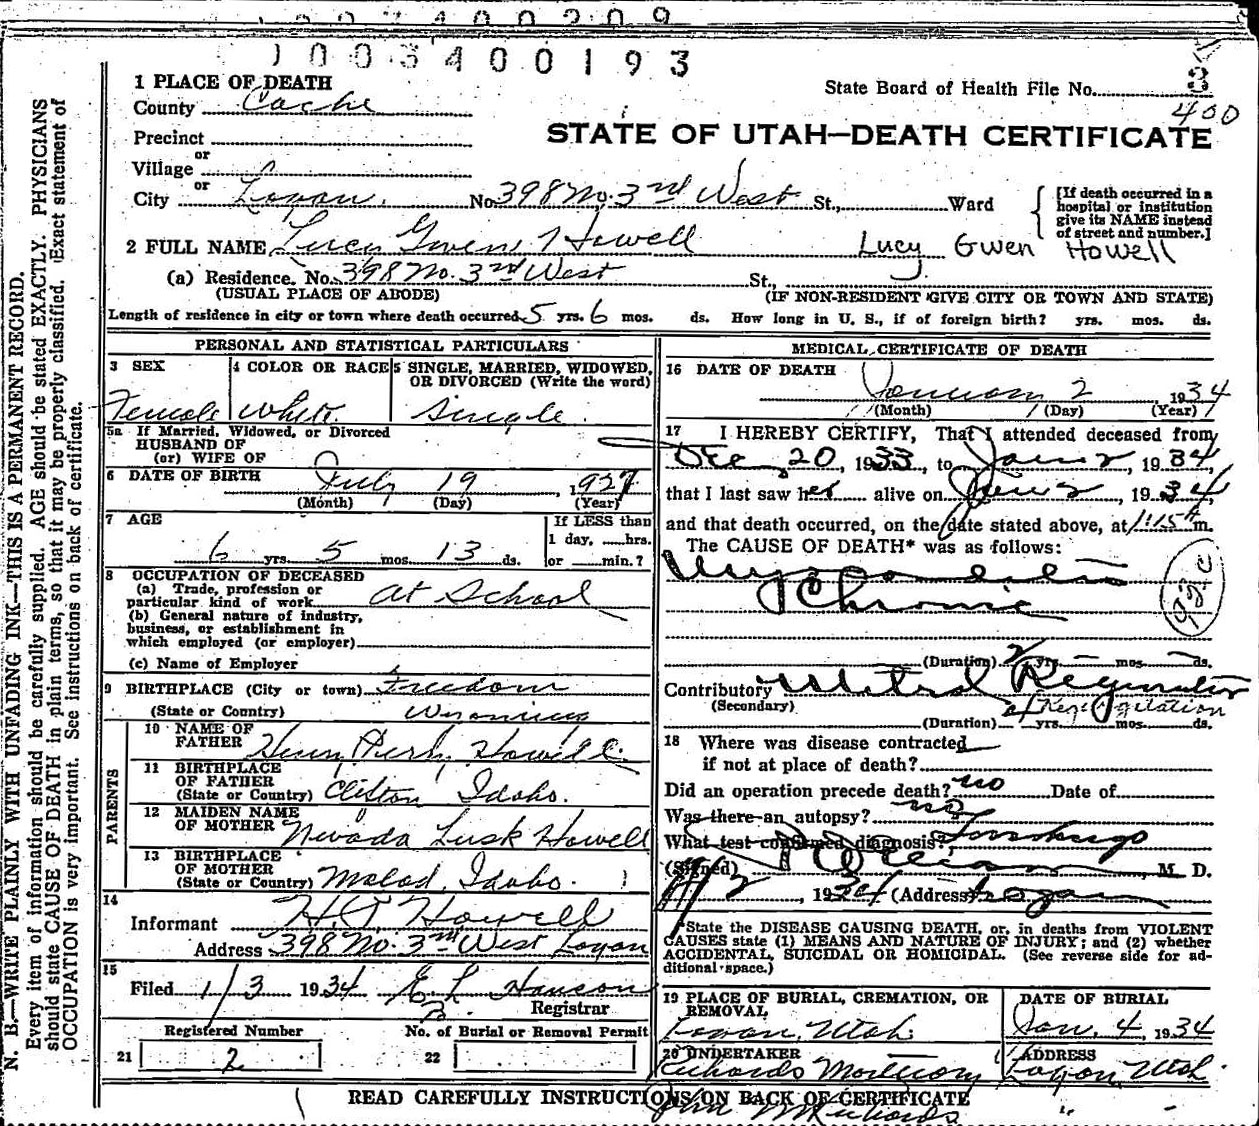 1003400209
1003400193
1 PLACE OF DEATH
County Cache
State Board of Health File No. 3
400
Precinct
or
Village
or
STATE OF UTAH—DEATH CERTIFICATE
City Logan. No. 398 No. 3rd West St., Ward
[If death occurred in a hospital or institution give its NAME instead of street and number.]
2 FULL NAME Lucy Gwen Howell Lucy Gwen Howell
(a) Residence. No. 398 No. 3rd West St.,
(USUAL PLACE OF ABODE) (IF NON-RESIDENT GIVE CITY OR TOWN AND STATE)
Length of residence in city or town where death occurred 5 yrs. 6 mos. ds. How long in U. S., if of foreign birth? yrs. mos. ds.
PERSONAL AND STATISTICAL PARTICULARS
3 SEX
Female
4 COLOR OR RACE
White
5 SINGLE, MARRIED, WIDOWED, OR DIVORCED (Write the word)
Single
5a If Married, Widowed, or Divorced
HUSBAND OF
(or) WIFE OF
6 DATE OF BIRTH July 19, 1927
(Month) (Day) (Year)
7 AGE
6 yrs. 5 mos. 13 ds.
If LESS than
1 day, hrs.
or min.?
8 OCCUPATION OF DECEASED
(a) Trade, profession or
particular kind of work At School
(b) General nature of industry,
business, or establishment in
which employed (or employer)
(c) Name of Employer
9 BIRTHPLACE (City or town) Freedom
(State or Country) Wyoming
PARENTS
10 NAME OF
FATHER Henry Perry Howell
11 BIRTHPLACE
OF FATHER
(State or Country) Clifton, Idaho.
12 MAIDEN NAME
OF MOTHER Nevada Lusk Howell
13 BIRTHPLACE
OF MOTHER
(State or Country) Malad, Idaho.
14
Informant Howell
Address 398 No. 3rd West Logan
15
Filed 1/3 1934 Hanson
Registrar
Registered Number
21 2
No. of Burial or Removal Permit
22
MEDICAL CERTIFICATE OF DEATH
16 DATE OF DEATH
January 2, 1934
(Month) (Day) (Year)
17 I HEREBY CERTIFY, That I attended deceased from
Dec 20, 1933, to Jan 2, 1934,
that I last saw her alive on Jan 2, 1934,
and that death occurred, on the date stated above, at m.
The CAUSE OF DEATH* was as follows:
Chronic
(Duration) yrs. mos. ds.
Contributory Mitral
(Secondary) Regurgitation
(Duration) yrs. mos. ds.
18 Where was disease contracted
if not at place of death?
Did an operation precede death? no Date of
Was there an autopsy? no
What test confirmed diagnosis?
(Signed) , M. D.
1/2, 1934 (Address) Logan
*State the DISEASE CAUSING DEATH, or, in deaths from VIOLENT
CAUSES state (1) MEANS AND NATURE OF INJURY; and (2) whether
ACCIDENTAL, SUICIDAL OR HOMICIDAL. (See reverse side for ad-
ditional space.)
19 PLACE OF BURIAL, CREMATION, OR
REMOVAL
Logan, Utah.
DATE OF BURIAL
Jan. 4, 1934
20 UNDERTAKER
Richards Mortuary
ADDRESS
Logan Utah.
READ CAREFULLY INSTRUCTIONS ON BACK OF CERTIFICATE
John Richards
N. B.—WRITE PLAINLY WITH UNFADING INK—THIS IS A PERMANENT RECORD.
Every item of information should be carefully supplied. AGE should be stated EXACTLY. PHYSICIANS
should state CAUSE OF DEATH in plain terms, so that it may be properly classified. Exact statement of
OCCUPATION is very important. See instructions on back of certificate.